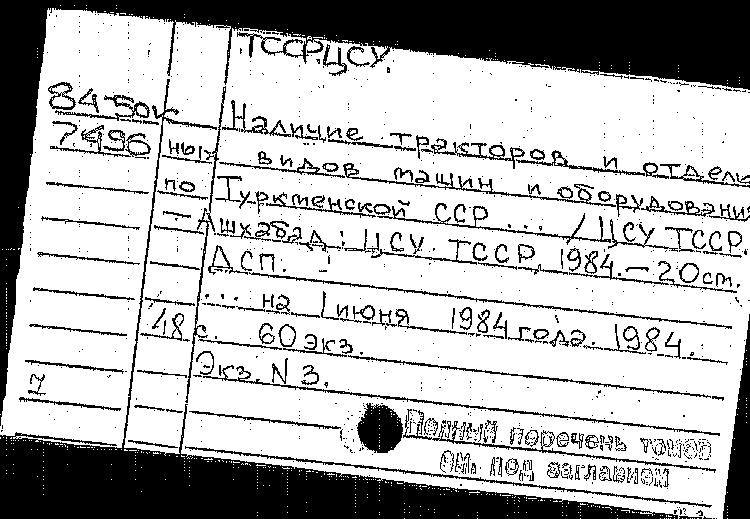 ТССР.ЦСУ.
84-50к
7496
Наличие тракторов и отдель
ных видов машин и оборудования
по Туркменской ССР ... / ЦСУ ТССР.
— Ашхабад : ЦСУ. ТССР, 1984. — 20 ст.
ДСП.
... на 1 июня 1984 года. 1984.
48 с. 60 экз.
Экз. N 3.
7
Полный перечень томов
см. под заглавием